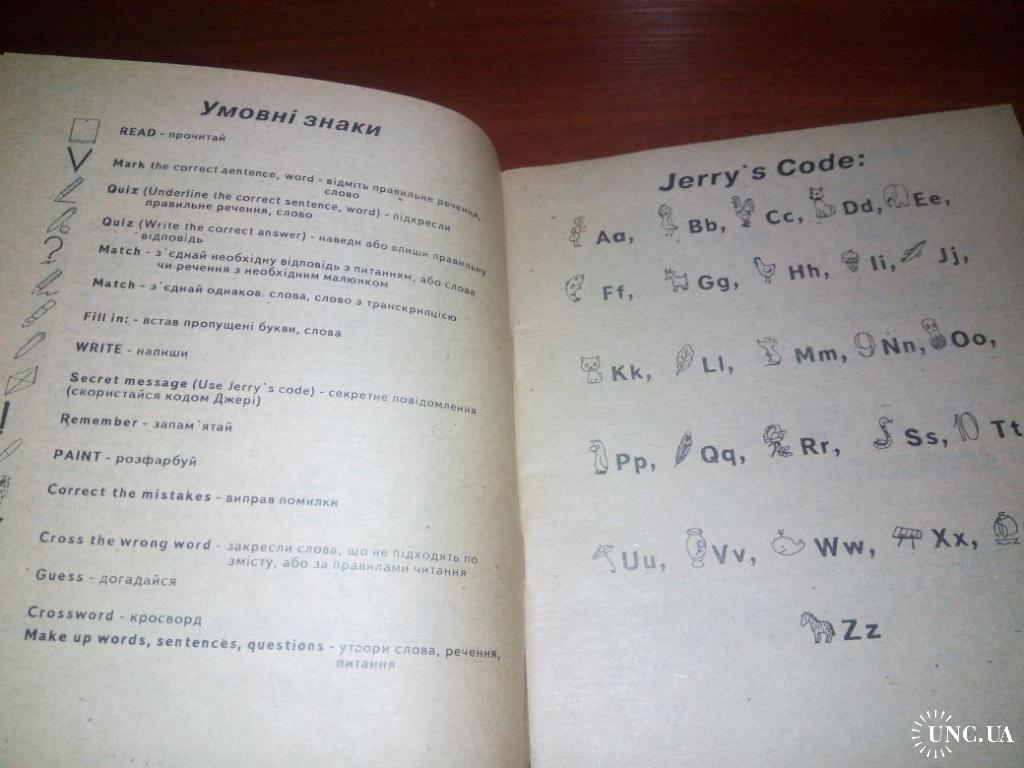 Умовні знаки
READ - прочитай
Mark the correct sentence, word - відміть правильне речення,
слово
Quiz (Underline the correct sentence, word) - підкресли
правильне речення, слово
Quiz (Write the correct answer) - наведи або впиши правильну
відповідь
Match - з`єднай необхідну відповідь з питанням, або слова
чи речення з необхідним малюнком
Match - з`єднай однаков. слова, слово з транскрипцією
Fill in: - встав пропущені букви, слова
WRITE - напиши
Secret message (Use Jerry`s code) - секретне повідомлення
(скористайся кодом Джері)
Remember - запам`ятай
PAINT - розфарбуй
Correct the mistakes - виправ помилки
Cross the wrong word - закресли слова, що не підходять по
змісту, або за правилами читання
Guess - догадайся
Crossword - кросворд
Make up words, sentences, questions - утвори слова, речення,
питання
Jerry`s Code:
Aa, Bb, Cc, Dd, Ee,
Ff, Gg, Hh, Ii, Jj,
Kk, Ll, Mm, Nn, Oo,
Pp, Qq, Rr, Ss, 10 Tt
Uu, Vv, Ww, Xx,
Zz
UNC.UA